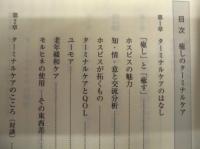 目次　癒しのターミナルケア
第1章　ターミナルケアのはなし
「癒し」と「癒す」
ホスピスの魅力
知・情・意と交流分析
ホスピスが拓くもの
ターミナルケアとQOL
ユーモア
老年緩和ケア
モルヒネの使用――その東西差
第2章　ターミナルケアのこころ（対談）